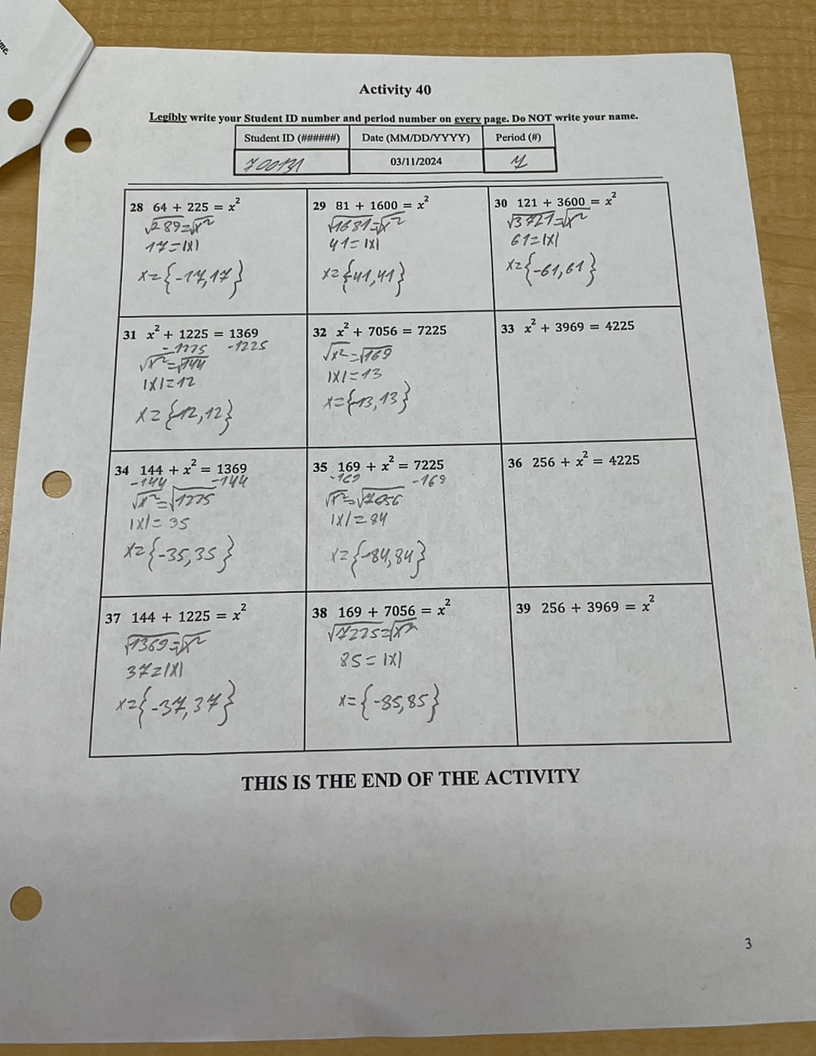 me.
Activity 40
Legibly write your Student ID number and period number on every page. Do NOT write your name.
Student ID (######) Date (MM/DD/YYYY) Period (#)
700131 03/11/2024
28 64 + 225 = x²
√289=√x²
17=|x|
x={-17,17}
29 81 + 1600 = x²
√1681=√x²
41=|x|
x={-41,41}
30 121 + 3600 = x²
√3721=√x²
61=|x|
x={-61,61}
31 x² + 1225 = 1369
-1225 -1225
√x²=√144
|x|=12
x={-12,12}
32 x² + 7056 = 7225
√x²=√169
|x|=13
x={-13,13}
33 x² + 3969 = 4225
34 144 + x² = 1369
-144 -144
√x²=√1225
|x|=35
x={-35,35}
35 169 + x² = 7225
-169 -169
√x²=√7056
|x|=84
x={-84,84}
36 256 + x² = 4225
37 144 + 1225 = x²
√1369=√x²
37=|x|
x={-37,37}
38 169 + 7056 = x²
√7225=√x²
85=|x|
x={-85,85}
39 256 + 3969 = x²
THIS IS THE END OF THE ACTIVITY
3